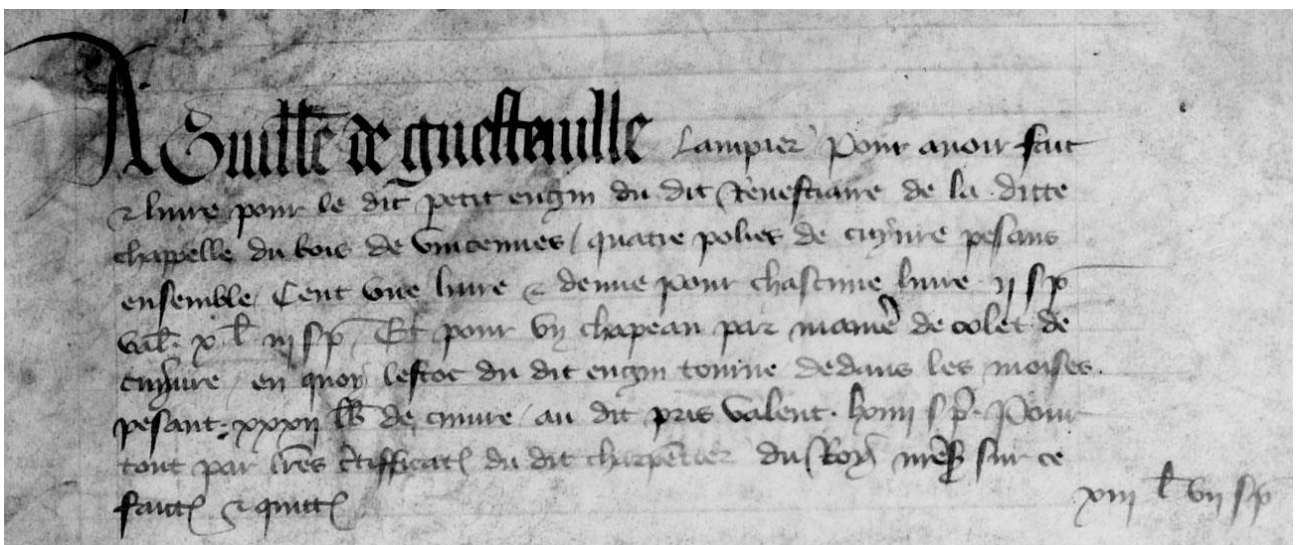 A Guille de guesteville Lampier pour avoir fait
& livre pour le dit petit engin du dit Revestiaire de la ditte
chappelle du bois de vincennes / quatre polies de cuyvre pesans
ensemble / Cent une livre & demie pour chascune livre ii s p
val x l iii s p / Et pour un chapeau par manie de colet de
cuyvre / en quoy lestoc du dit engin tourne dedans les moises.
pesant xxxii lb de cuivre / au dit pris valent. lxiiii s p. Pour
tout par lres certifficat du dit charpentier du Roy sur ce
fait & quitt
xiii l vii s p